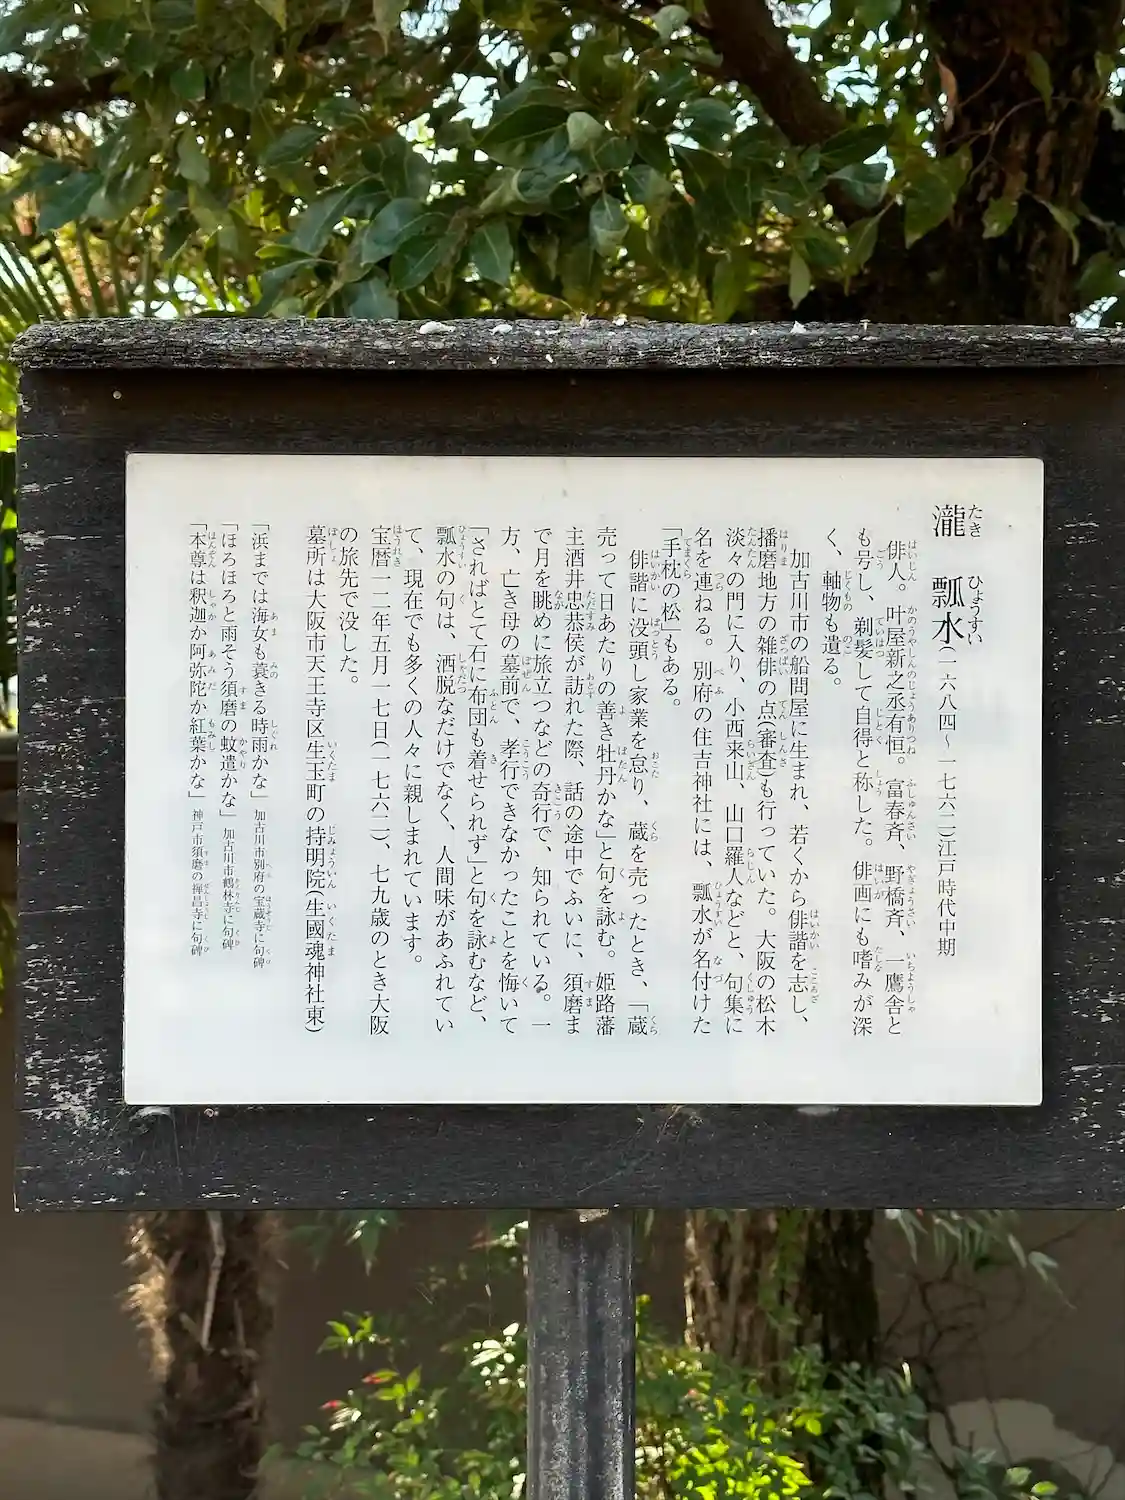 瀧　瓢水(一六八四〜一七六二)江戸時代中期
俳人。叶屋新之丞有恒。富春斉、野橋斉、一鷹舎と
も号し、剃髪して自得と称した。俳画にも嗜みが深
く、軸物も遺る。
加古川市の船問屋に生まれ、若くから俳諧を志し、
播磨地方の雑俳の点(審査)も行っていた。大阪の松木
淡々の門に入り、小西来山、山口羅人などと、句集に
名を連ねる。別府の住吉神社には、瓢水が名付けた
「手枕の松」もある。
俳諧に没頭し家業を怠り、蔵を売ったとき、「蔵
売って日あたりの善き牡丹かな」と句を詠む。姫路藩
主酒井忠恭侯が訪れた際、話の途中でふいに、須磨ま
で月を眺めに旅立つなどの奇行で、知られている。一
方、亡き母の墓前で、孝行できなかったことを悔いて
「さればとて石に布団も着せられず」と句を詠むなど、
瓢水の句は、洒脱なだけでなく、人間味があふれてい
て、現在でも多くの人々に親しまれています。
宝暦一二年五月一七日(一七六二)、七九歳のとき大阪
の旅先で没した。
墓所は大阪市天王寺区生玉町の持明院(生國魂神社東)
「浜までは海女も蓑きる時雨かな」加古川市別府の宝蔵寺に句碑
「ほろほろと雨そう須磨の蚊遣かな」加古川市鶴林寺に句碑
「本尊は釈迦か阿弥陀か紅葉かな」神戸市須磨の禅昌寺に句碑